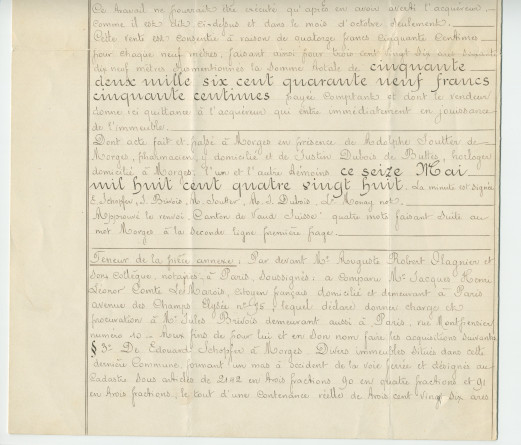 Ce travail ne pourront être exécuté qu'après en avoir averti l'acquéreur
comme il est dit ci-dessus et dans le mois d'octobre seulement.
Cette vente est consentie à raison de quatorze francs cinquante centimes
pour chaque neuf mètres, faisant ainsi pour trois cent vingt six ares
dix neuf mètres susmentionnés la somme totale de cinquante
deux mille six cent quarante neuf francs
cinquante centimes payée comptant et dont le vendeur
donne ici quittance à l'acquéreur qui entre immédiatement en jouissance
de l'immeuble.
Dont acte fait et passé à Morges en présence de Adolphe Soutter de
Morges, pharmacien y domicilié et de Justin Dubois de Buttes, horloger
domicilié à Morges, l'un et l'autre témoins ce seize Mai
mil huit cent quatre vingt huit. La minute est signée
E. Schopfer, J. Brivois, A. Soutter, M. J. Dubois, Ls Monay not.
Approuvé le renvoi, Canton de Vaud Suisse quatre mots faisant suite au
mot Morges à la seconde ligne première page.
Teneur de la pièce annexe: Par devant Me Auguste Robert Plagnier et
son collègue, notaires à Paris, soussignés: a comparu Mr Jacques Henri
Léonor Comte Le Marois, citoyen français domicilié et demeurant à Paris
avenue des Champs Elysée lequel déclare donner charge et
procuration à Mr Jules Brivois demeurant aussi à Paris, rue Montpensier
numéro 10 aux fins de pour lui et en son nom faire les acquisitions suivantes
§ 3° De Edouard Schopfer à Morges. Divers immeubles situés dans cette
dernière Commune formant un mas à occident de la voie ferrée et désignés au
cadastre sous articles de 2142 en trois fractions, 90 en quatre fractions et 91
en trois fractions, le tout d'une contenance réelle de trois cent vingt six ares